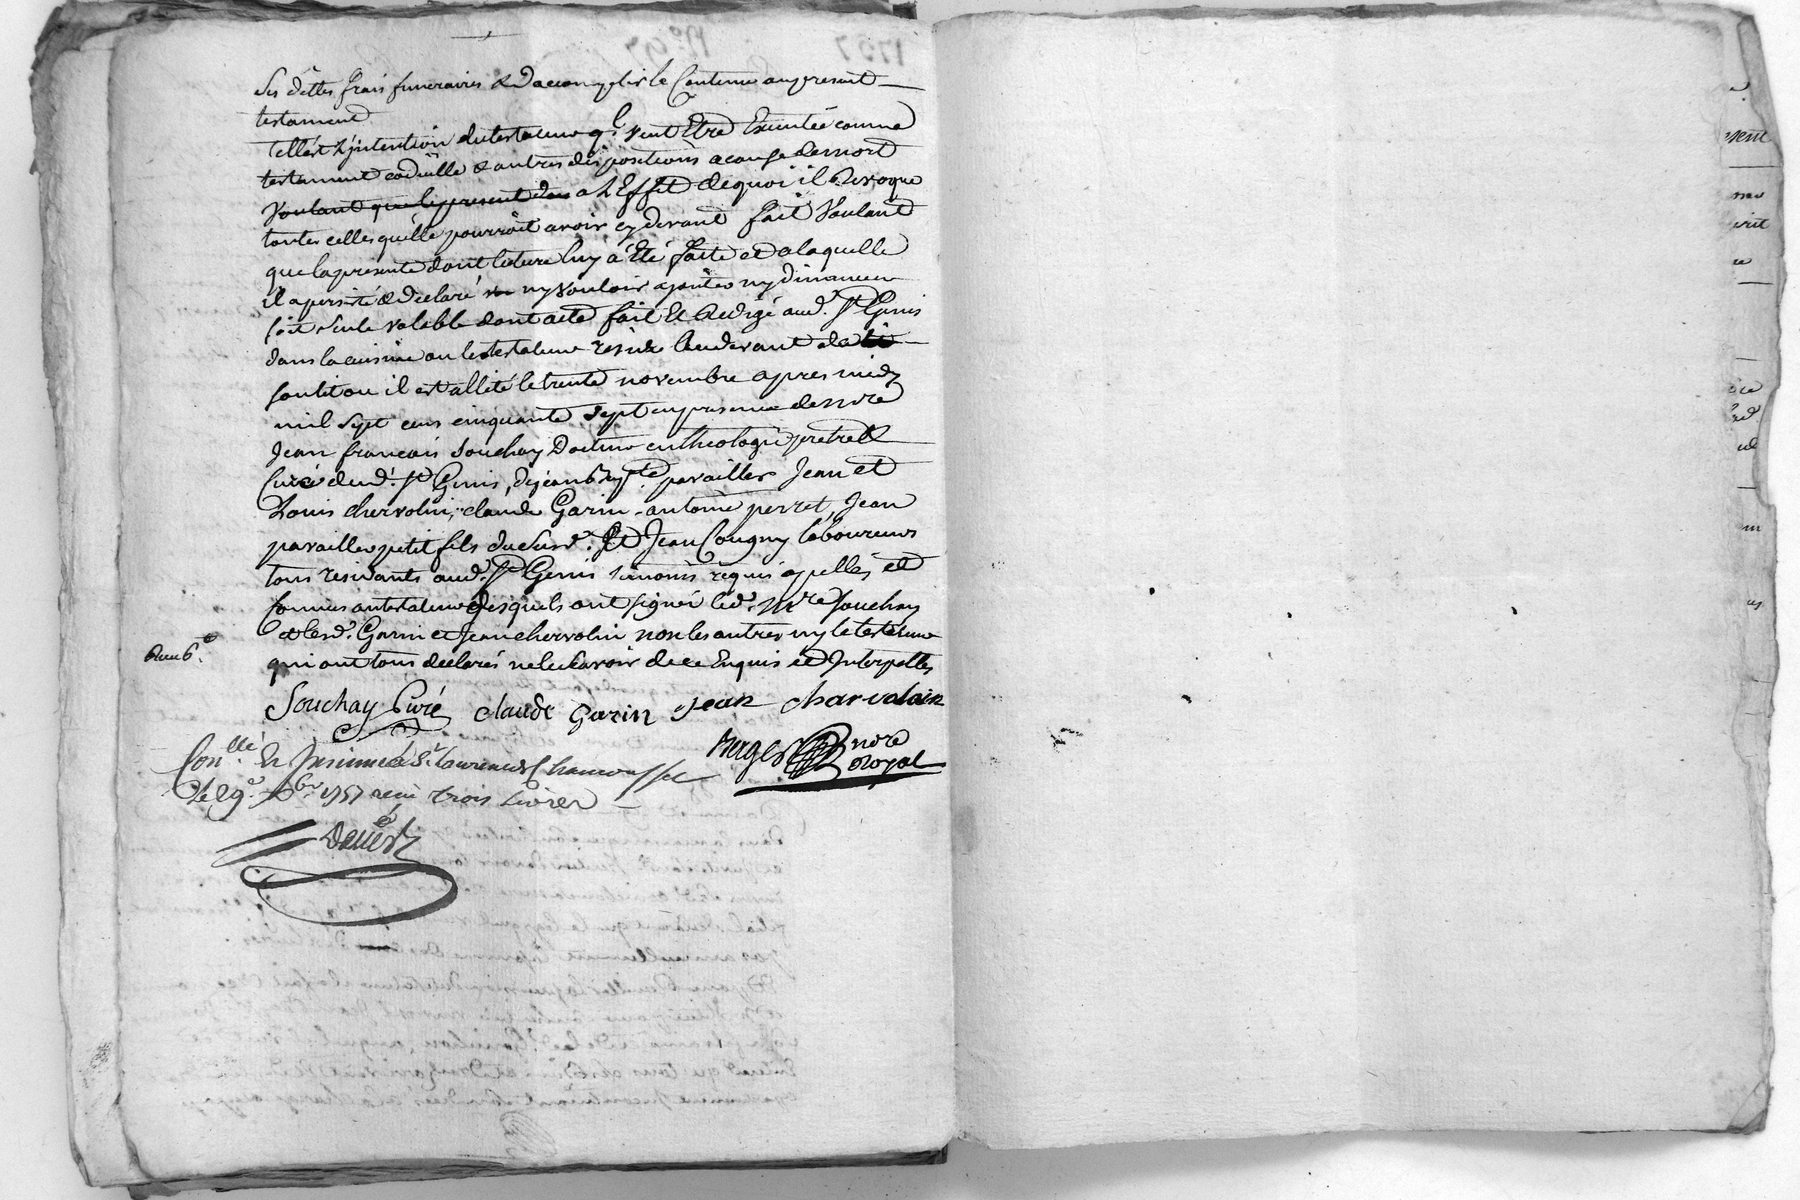 ses dettes frais funeraires & Daccomplir le Contenu aupresent
testament
telle est L'jntention dutestateur q.l veut Etre Executée comme
testament codicille & autres dispositions acause demort
voulant que lepresent a L'Effet dequoi il Revoque
toutes celles quelle pourroit avoir cydevant fait Voulant
que lapresente dont lecture luy à été faite et alaquelle
il apersisté & declaré ny vouloir ajouter ny diminuer
soit seule valable dont acte fait et Redigé aud. St Genis
dans lacuisine ou letestateur reside audevant de
sonlit ou il est allité letrente novembre apres midy
mil sept cens cinquante sept enpresence demre
Jean francois Souchay Docteur entheologie pretre &
Curé dud. St Genis, dejean Bapte parailler Jean et
Louis chervolin, claude Garin, antoine perret, Jean
parailler petit fils dususd. Et Jean Cougny laboureurs
tous residants aud. St Genis temoins requis apellés et
connus autestateur desquels ont signé led. mre Souchay
& led. Garin et Jean chervolin non les autres ny letestateur
qui ont tous declarés nelesavoir dece Enquis et Interpellés
Souchay Curé claude Garin jean charvolain
nore
Royal
Conllé Et Insinué à St Laurent de Chamousset
le 29e Xbre 1757 reçu trois Livres